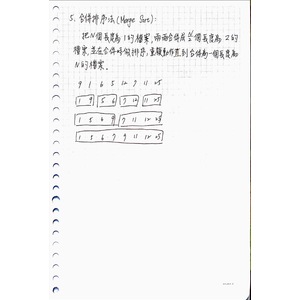 5. 合併排序法(Merge Sort):
把N個長度為1的檔案,兩兩合併成N/2個長度為2的
檔案,並在合併時做排序,重覆動作直到合併為一個長度為
N的檔案。
9 1 6 5 12 7 11 25
1 9 5 6 7 12 11 25
1 5 6 9 7 11 12 25
1 5 6 7 9 11 12 25